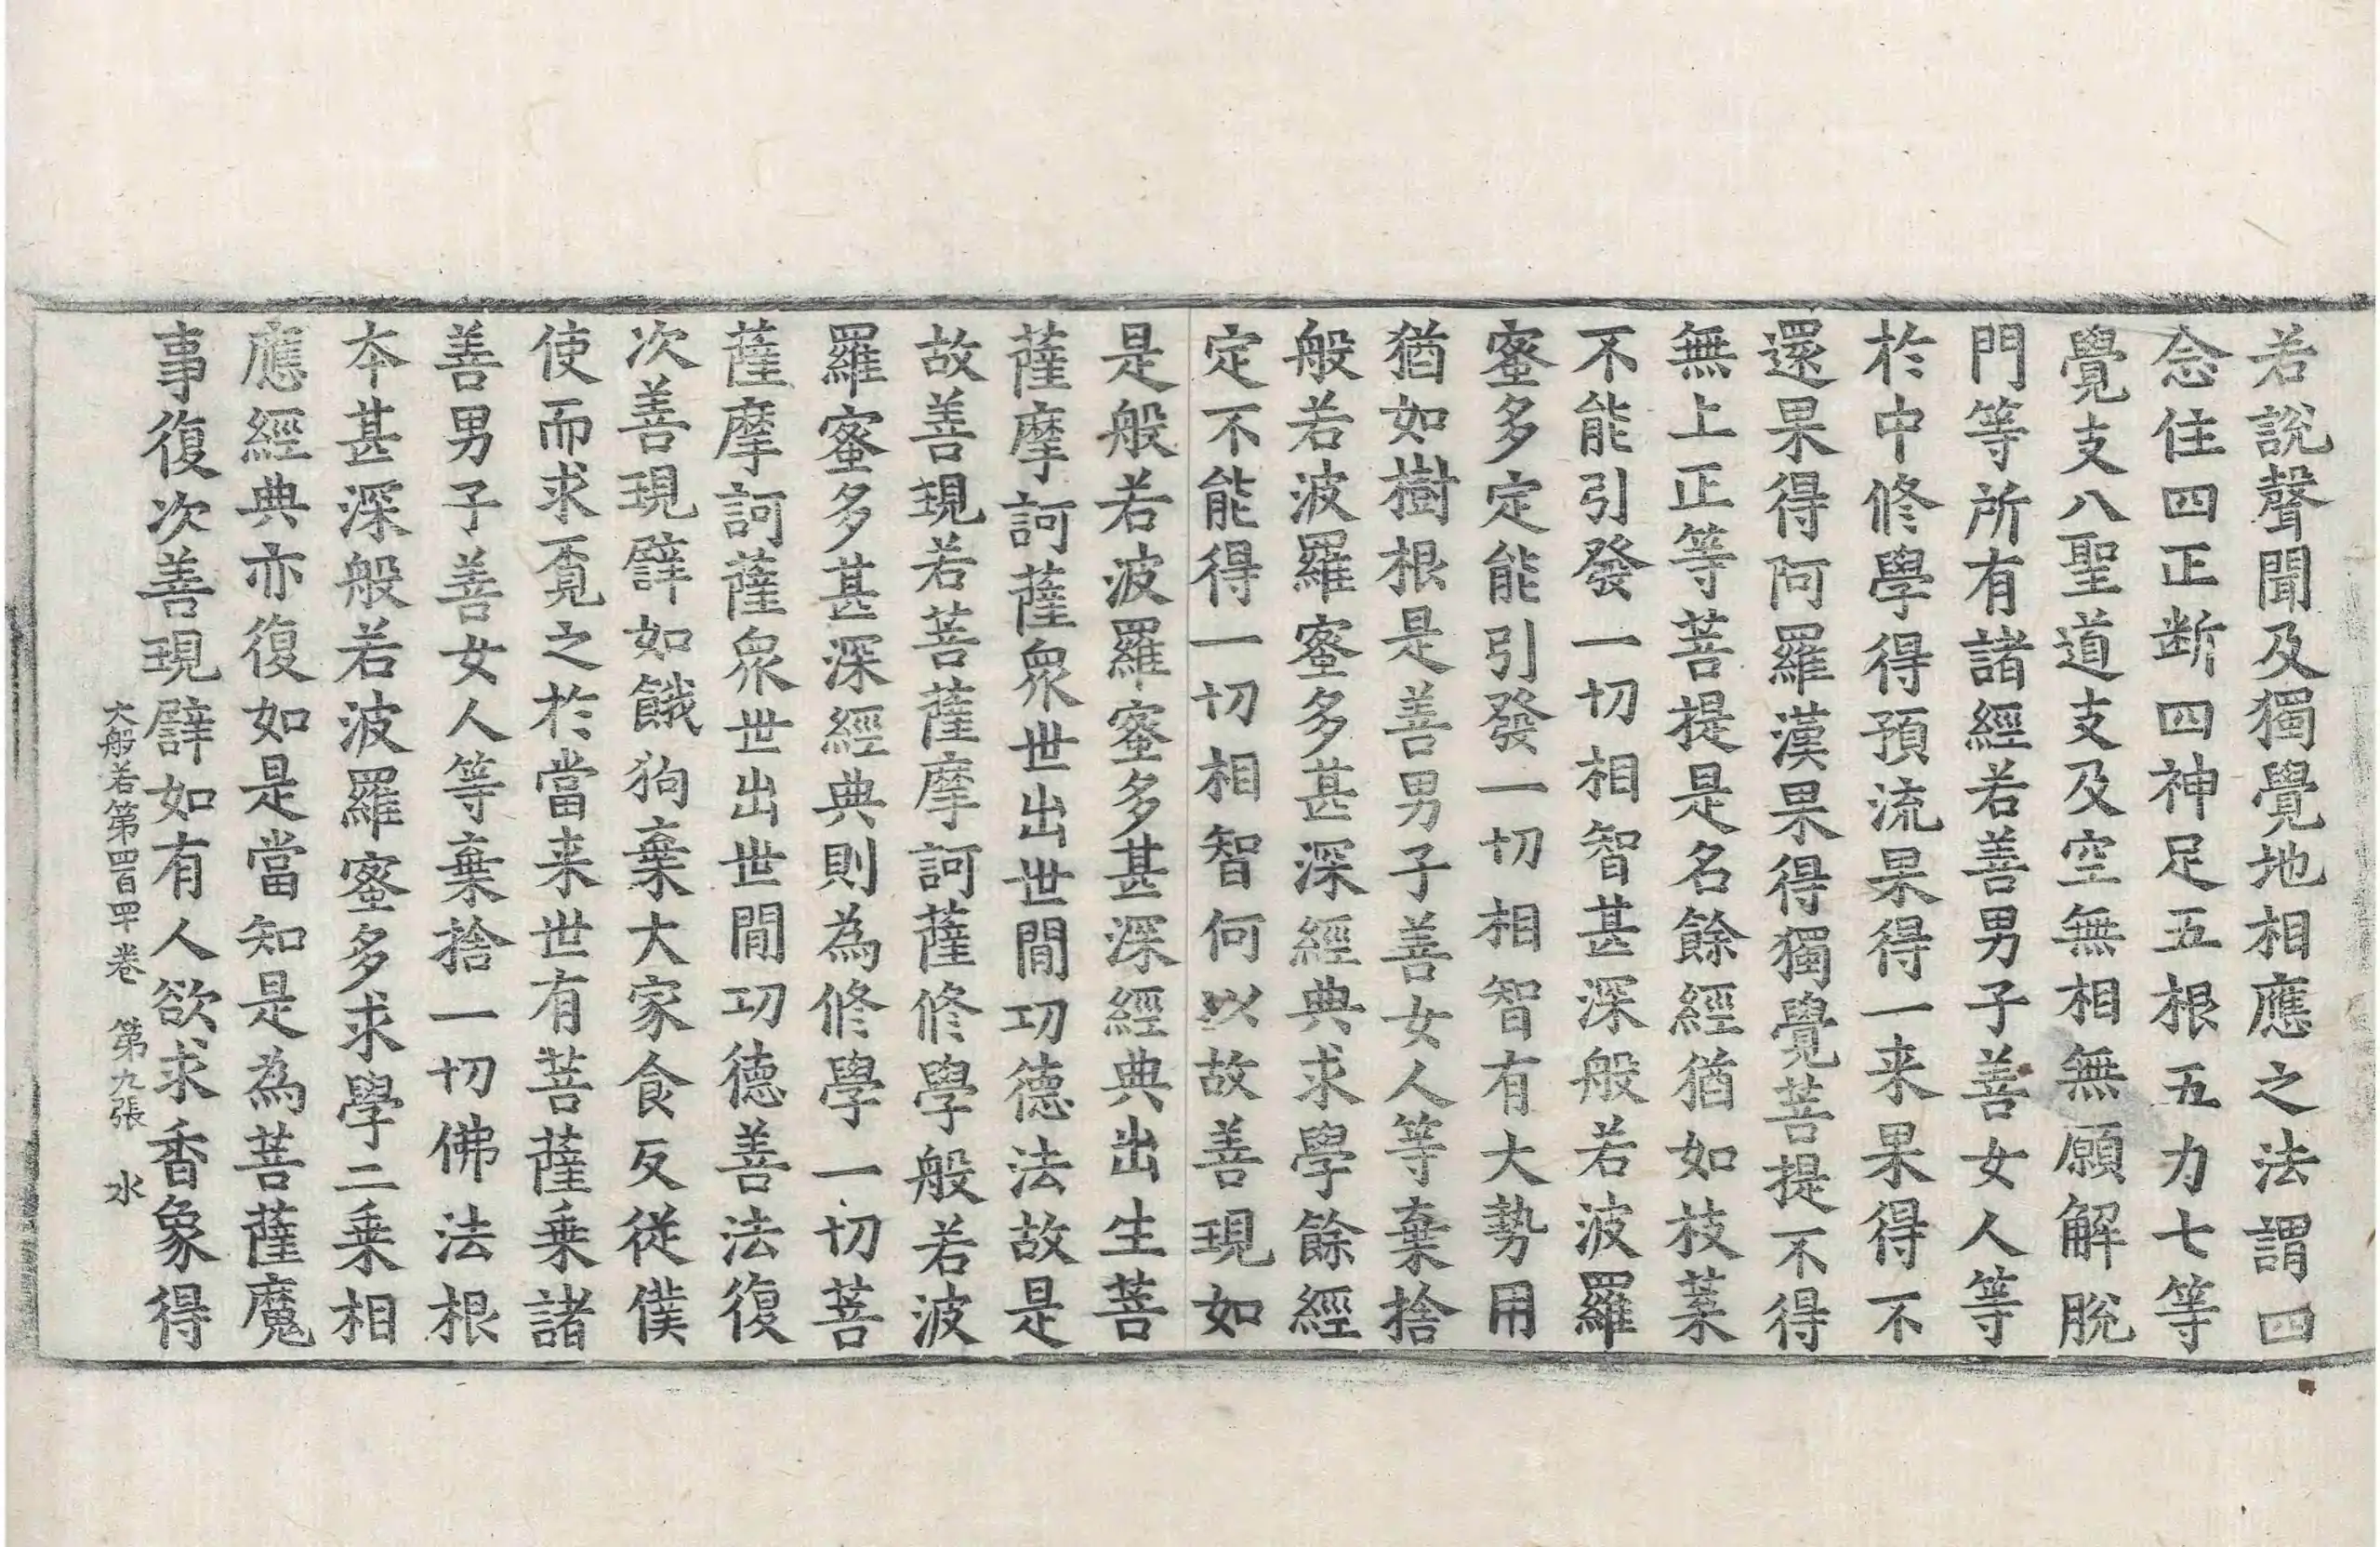 若說聲聞及獨覺地相應之法謂四
念住四正断四神足五根五力七等
覺支八聖道支及空無相無願解脫
門等所有諸經若善男子善女人等
於中修學得預流果得一来果得不
還果得阿羅漢果得獨覺菩提不得
無上正等菩提是名餘經猶如枝葉
不能引發一切相智甚深般若波羅
蜜多定能引發一切相智有大勢用
猶如樹根是善男子善女人等棄捨
般若波羅蜜多甚深經典求學餘經
定不能得一切相智何以故善現如
是般若波羅蜜多甚深經典出生菩
薩摩訶薩眾世出世間功德法故是
故善現若菩薩摩訶薩修學般若波
羅蜜多甚深經典則為修學一切菩
薩摩訶薩眾世出世間功德善法復
次善現譬如餓狗棄大家食反從僕
使而求覓之於當来世有菩薩乗諸
善男子善女人等棄捨一切佛法根
本甚深般若波羅蜜多求學二乗相
應經典亦復如是當知是為菩薩魔
事復次善現譬如有人欲求香象得
大般若第四百四十卷 第九張 水